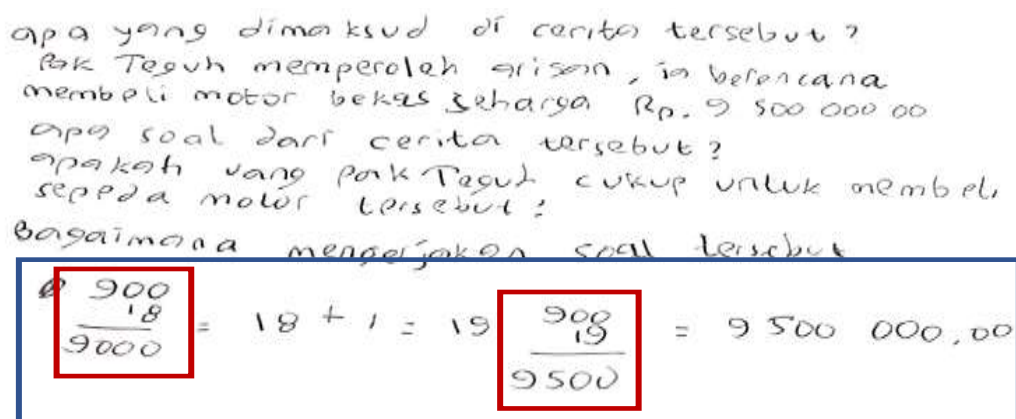 apa yang dimaksud di cerita tersebut?
Pak Teguh memperoleh arisan, ia berencana
membeli motor bekas seharga Rp. 9 500 000 00
apa soal dari cerita tersebut?
apakah uang Pak Teguh cukup untuk membeli
sepeda motor tersebut?
Bagaimana mengerjakan soal tersebut
900 18 9000 = 18 + 1 = 19 900 19 9500 = 9 500 000,00